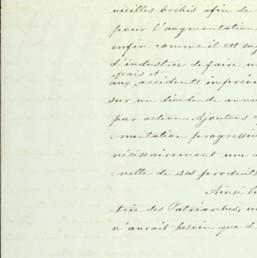 vieilles brebis afin de
pour l'augmentation
enfin comme il est
d'industrie de faire
frais et
aux accidents
sur un dividende
par action. Ajoutons
mentation
nécessairement une
nelle de ses produits
Ainsi
trie des Patriarches,
n'aurait besoin que